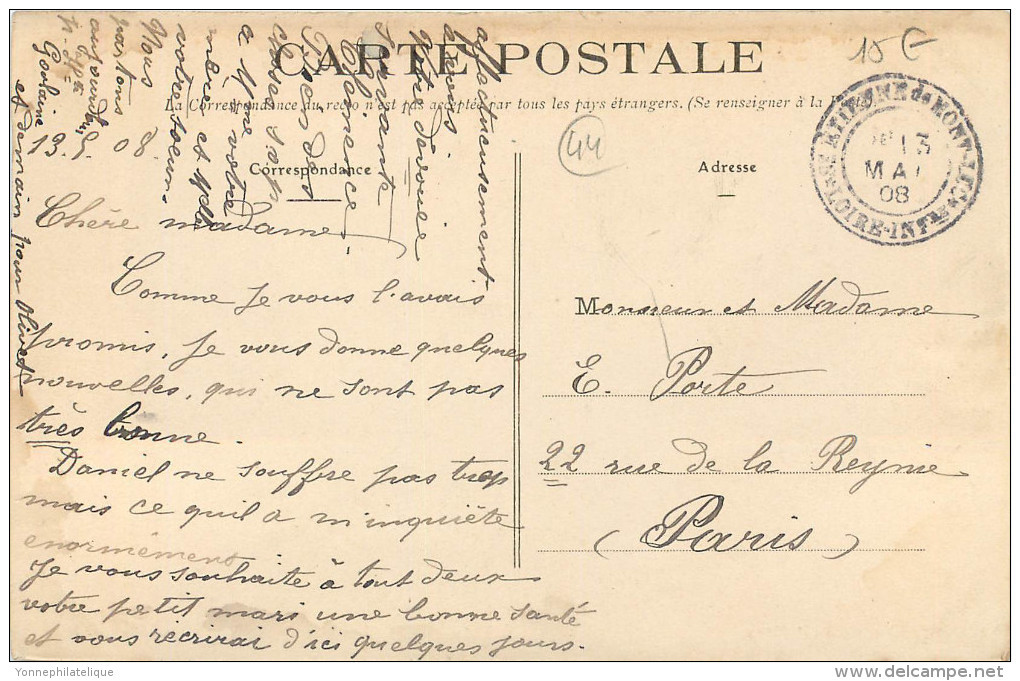 CARTE POSTALE
15 €
La Correspondance du recto n'est pas acceptée par tous les pays étrangers. (Se renseigner à la Poste)
44
Correspondance
Adresse
St ETIENNE de MONT-LUC
13
MAI
08
LOIRE-INFre
13.5.08.
Chère madame
Comme Je vous l'avais
promis, Je vous donne quelques
nouvelles, qui ne sont pas
très bonne.
Daniel ne souffre pas trop
mais ce quil a m'inquiète
enormément
Je vous souhaite à tout deux
votre petit mari une bonne santé
et vous récrirai d'ici quelques jours.
Monsieur et Madame
E. Porte
22 rue de la Reynie
(Paris)
Nous
partons
aujourdhui
Goulaine
et demain pour Olivet
Bien des
choses
a Mme votre
mère et Mlle
votre soeur
affectueusement
Votre dévouée
servante
Clémence
Yonnephilatelique
www.delcampe.net